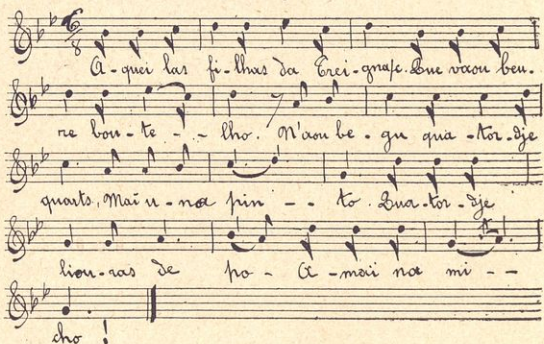 A-quei las fi-lhas da Trei-gnac. Que vaou beu-
re bou-te--lho. N'aou be-gu qua-tor-dje
quarts, Mai u-na pin--to. Qua-tor-dje
liou-ras de po- A-mai na mi--
cho !